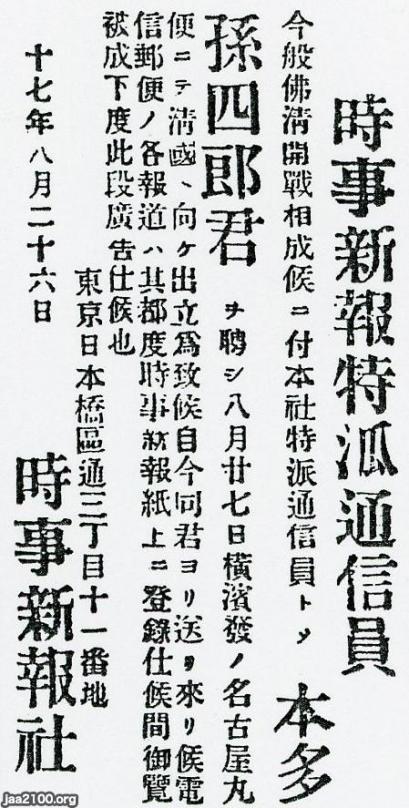 時事新報特派通信員
今般佛清開戰相成候ニ付本社特派通信員トシテ 本多
孫四郎君ヲ聘シ八月廿七日橫濱發ノ名古屋丸
便ニテ清國ヘ向ケ出立爲致候自今同君ヨリ送リ來リ候電
信郵便ノ各報道ハ其都度時事新報紙上ニ登錄仕候間御覽
被成下度此段廣告仕候也
東京日本橋區通三丁目十一番地
十七年八月二十六日
時事新報社
Jaa2100.org